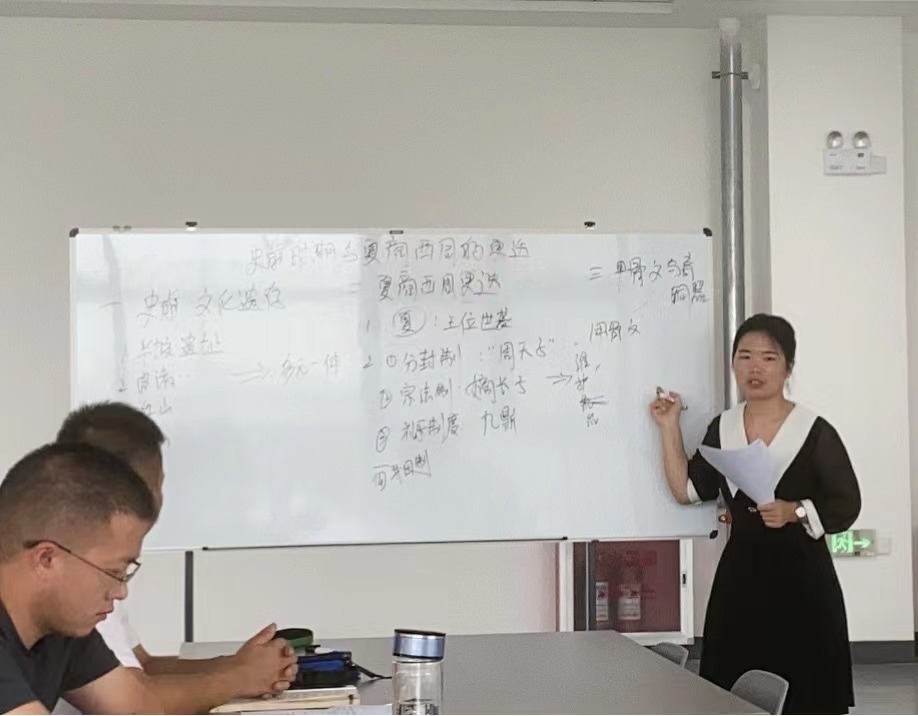 史前时期与夏商西周的更迭
一 史前 文化遗存
1 半坡遗址
2 良渚
红山
⇒ 多元一体
二 夏商西周更迭
1. 夏：王位世袭
2. ①分封制："周天子"
②宗法制：嫡长子
③礼乐制度 九鼎
④井田制
三 甲骨文与青
铜器